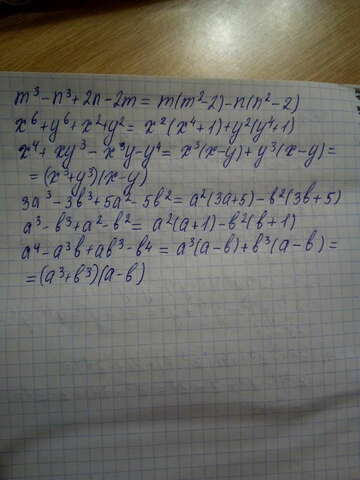 m³-n³+2n-2m= m(m²-2)-n(n²-2)
x⁶+y⁶+x²+y²= x²(x⁴+1)+y²(y⁴+1)
x⁴+xy³-x³y-y⁴= x³(x-y)+y³(x-y)=
=(x³+y³)(x-y)
3a³-3b³+5a²-5b²= a²(3a+5)-b²(3b+5)
a³-b³+a²-b²= a²(a+1)-b²(b+1)
a⁴-a³b+ab³-b⁴= a³(a-b)+b³(a-b)=
=(a³+b³)(a-b)